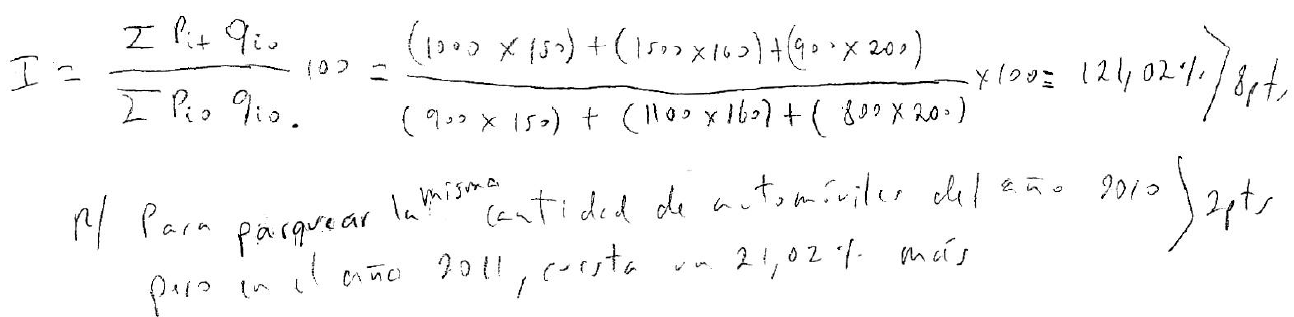 I = Σ Pit qio / Σ Pio qio. 100 = (1000 x 150) + (1500 x 160) + (900 x 200) / (900 x 150) + (1100 x 160) + (800 x 200) x 100 = 121,02% } 8pts
R/ Para parquear la misma cantidad de automóviles del año 2010 } 2pts
pero en el año 2011, cuesta un 21,02 % más